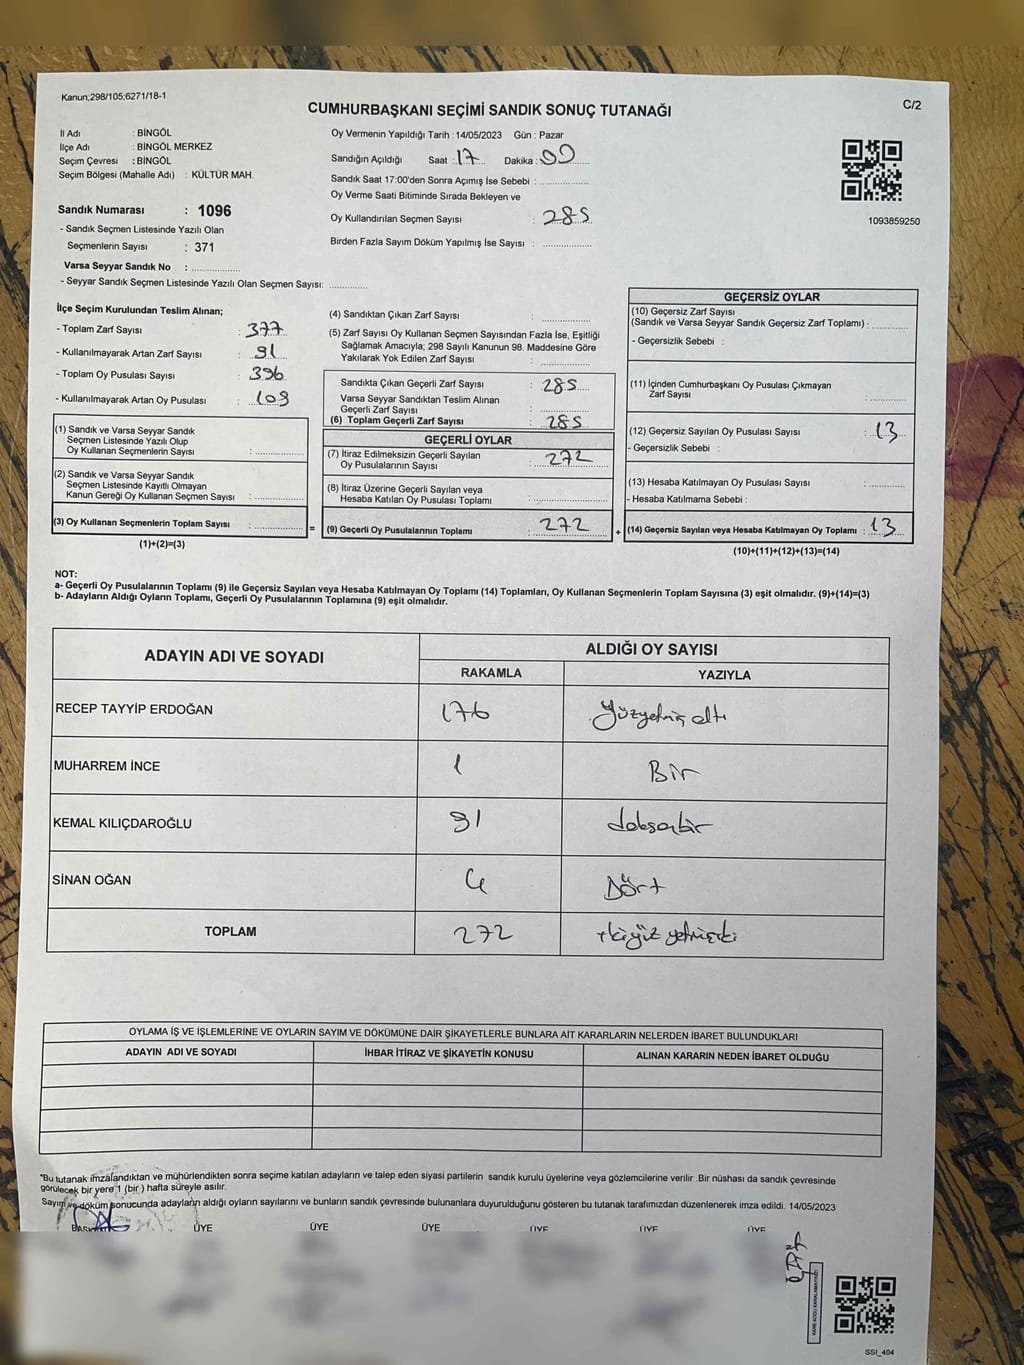 Kanun;298/105;6271/18-1
C/2
CUMHURBAŞKANI SEÇİMİ SANDIK SONUÇ TUTANAĞI
İl Adı : BİNGÖL
İlçe Adı : BİNGÖL MERKEZ
Seçim Çevresi : BİNGÖL
Seçim Bölgesi (Mahalle Adı) : KÜLTÜR MAH.
Sandık Numarası : 1096
- Sandık Seçmen Listesinde Yazılı Olan
Seçmenlerin Sayısı : 371
Varsa Seyyar Sandık No : ..................
- Seyyar Sandık Seçmen Listesinde Yazılı Olan Seçmen Sayısı: ..............
Oy Vermenin Yapıldığı Tarih : 14/05/2023 Gün : Pazar
Sandığın Açıldığı Saat : 17 Dakika : 00
Sandık Saat 17:00'den Sonra Açımış İse Sebebi : ..................
Oy Verme Saati Bitiminde Sırada Bekleyen ve
Oy Kullandırılan Seçmen Sayısı : 285
Birden Fazla Sayım Döküm Yapılmış İse Sayısı : ..................
1093859250
İlçe Seçim Kurulundan Teslim Alınan;
- Toplam Zarf Sayısı : 377
- Kullanılmayarak Artan Zarf Sayısı : 91
- Toplam Oy Pusulası Sayısı : 396
- Kullanılmayarak Artan Oy Pusulası : 109
(1) Sandık ve Varsa Seyyar Sandık
Seçmen Listesinde Yazılı Olup
Oy Kullanan Seçmenlerin Sayısı : ..................
(2) Sandık ve Varsa Seyyar Sandık
Seçmen Listesinde Kayıtlı Olmayan
Kanun Gereği Oy Kullanan Seçmen Sayısı : ..................
(3) Oy Kullanan Seçmenlerin Toplam Sayısı : .................. =
(1)+(2)=(3)
(4) Sandıktan Çıkan Zarf Sayısı : ..................
(5) Zarf Sayısı Oy Kullanan Seçmen Sayısından Fazla İse, Eşitliği
Sağlamak Amacıyla; 298 Sayılı Kanunun 98. Maddesine Göre
Yakılarak Yok Edilen Zarf Sayısı : ..................
Sandıkta Çıkan Geçerli Zarf Sayısı : 285
Varsa Seyyar Sandıktan Teslim Alınan
Geçerli Zarf Sayısı : ..................
(6) Toplam Geçerli Zarf Sayısı : 285
GEÇERLİ OYLAR
(7) İtiraz Edilmeksizin Geçerli Sayılan
Oy Pusulalarının Sayısı : 272
(8) İtiraz Üzerine Geçerli Sayılan veya
Hesaba Katılan Oy Pusulası Toplamı : ..................
(9) Geçerli Oy Pusulalarının Toplamı : 272 +
GEÇERSİZ OYLAR
(10) Geçersiz Zarf Sayısı
(Sandık ve Varsa Seyyar Sandık Geçersiz Zarf Toplamı) : ............
- Geçersizlik Sebebi :
(11) İçinden Cumhurbaşkanı Oy Pusulası Çıkmayan
Zarf Sayısı : ............
(12) Geçersiz Sayılan Oy Pusulası Sayısı : 13
- Geçersizlik Sebebi :
(13) Hesaba Katılmayan Oy Pusulası Sayısı : ............
- Hesaba Katılmama Sebebi :
(14) Geçersiz Sayılan veya Hesaba Katılmayan Oy Toplamı : 13
(10)+(11)+(12)+(13)=(14)
NOT:
a- Geçerli Oy Pusulalarının Toplamı (9) ile Geçersiz Sayılan veya Hesaba Katılmayan Oy Toplamı (14) Toplamları, Oy Kullanan Seçmenlerin Toplam Sayısına (3) eşit olmalıdır. (9)+(14)=(3)
b- Adayların Aldığı Oyların Toplamı, Geçerli Oy Pusulalarının Toplamına (9) eşit olmalıdır.
ADAYIN ADI VE SOYADI ALDIĞI OY SAYISI
RAKAMLA YAZIYLA
RECEP TAYYİP ERDOĞAN 176 Yüzyetmiş altı
MUHARREM İNCE 1 Bir
KEMAL KILIÇDAROĞLU 91 doksanbir
SİNAN OĞAN 4 Dört
TOPLAM 272 ikiyüz yetmişiki
OYLAMA İŞ VE İŞLEMLERİNE VE OYLARIN SAYIM VE DÖKÜMÜNE DAİR ŞİKAYETLERLE BUNLARA AİT KARARLARIN NELERDEN İBARET BULUNDUKLARI
ADAYIN ADI VE SOYADI İHBAR İTİRAZ VE ŞİKAYETİN KONUSU ALINAN KARARIN NEDEN İBARET OLDUĞU
"Bu tutanak imzalandıktan ve mühürlendikten sonra seçime katılan adayların ve talep eden siyasi partilerin sandık kurulu üyelerine veya gözlemcilerine verilir. Bir nüshası da sandık çevresinde
görülecek bir yere 1 (bir ) hafta süreyle asılır.
Sayım ve döküm sonucunda adayların aldığı oyların sayılarını ve bunların sandık çevresinde bulunanlara duyurulduğunu gösteren bu tutanak tarafımızdan düzenlenerek imza edildi. 14/05/2023
BAŞKAN ÜYE ÜYE ÜYE ÜYE ÜYE ÜYE
SSI_404